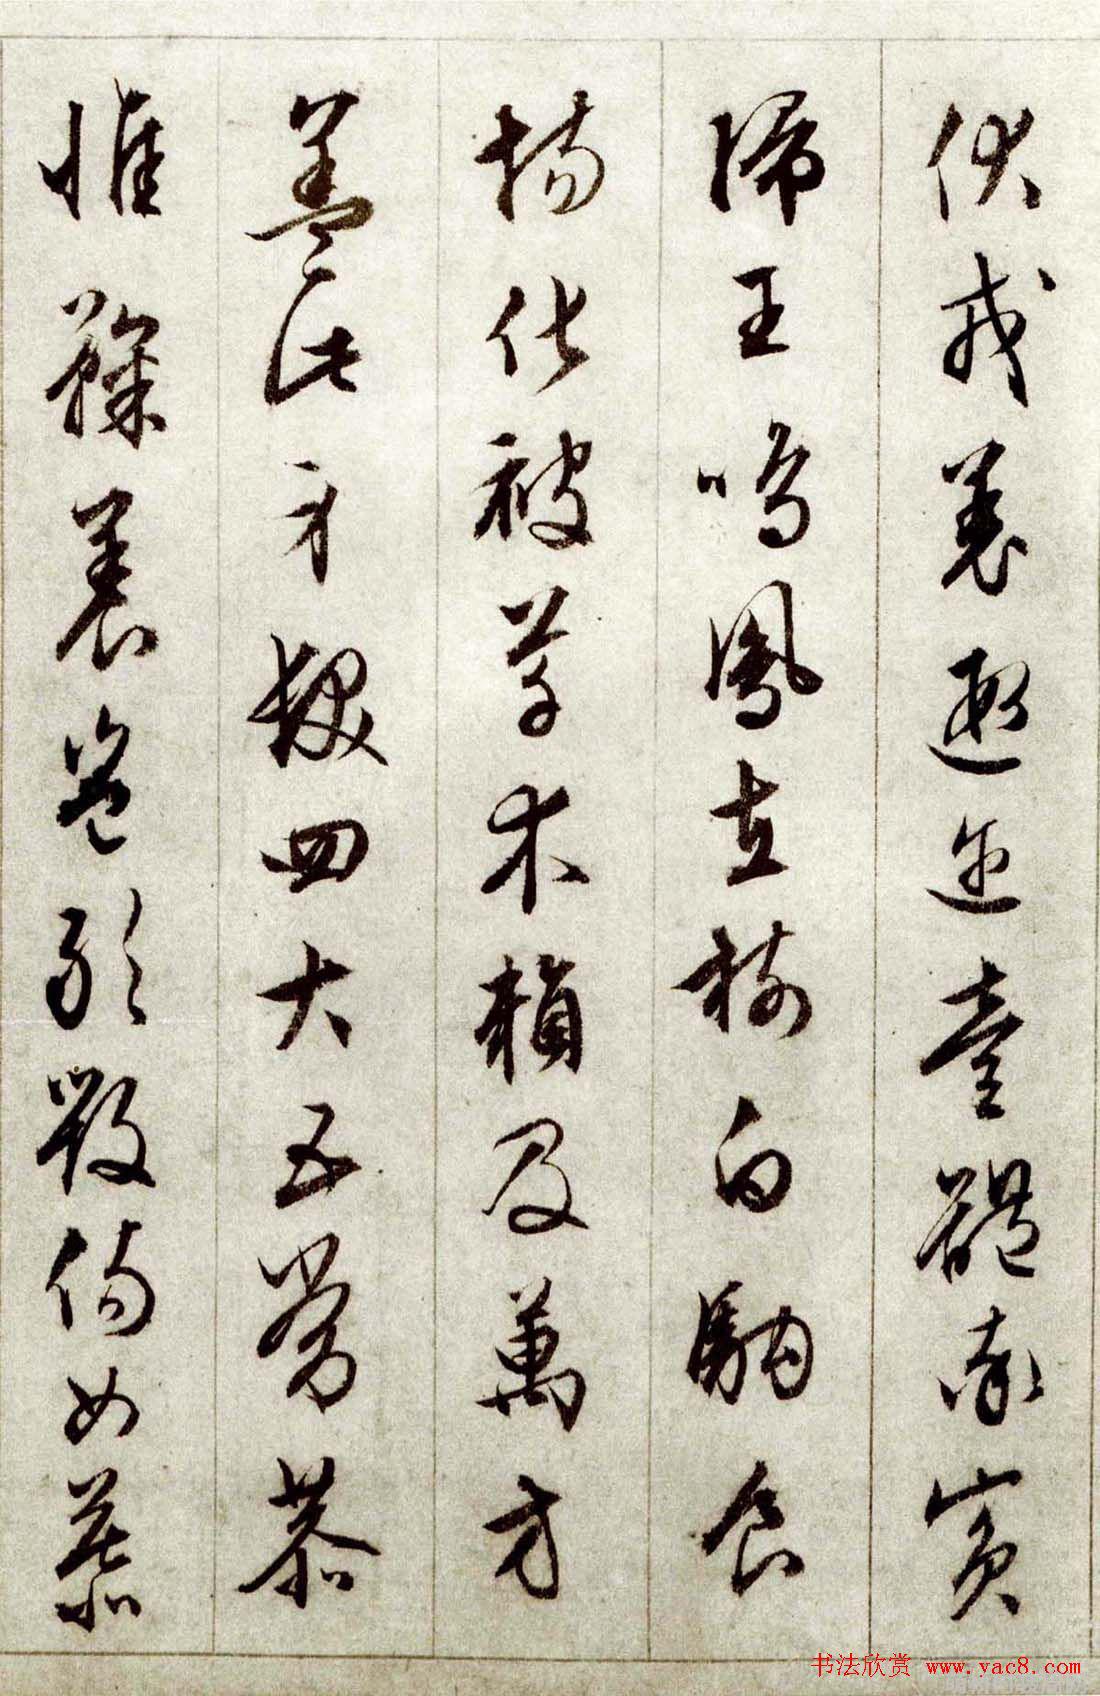 伏戎羌遐迩壹體率賓
歸王鳴鳳在樹白駒食
場化被草木賴及萬方
蓋此身髮四大五常恭
惟鞠養豈敢毀傷女慕
书法欣赏 www.yac8.com